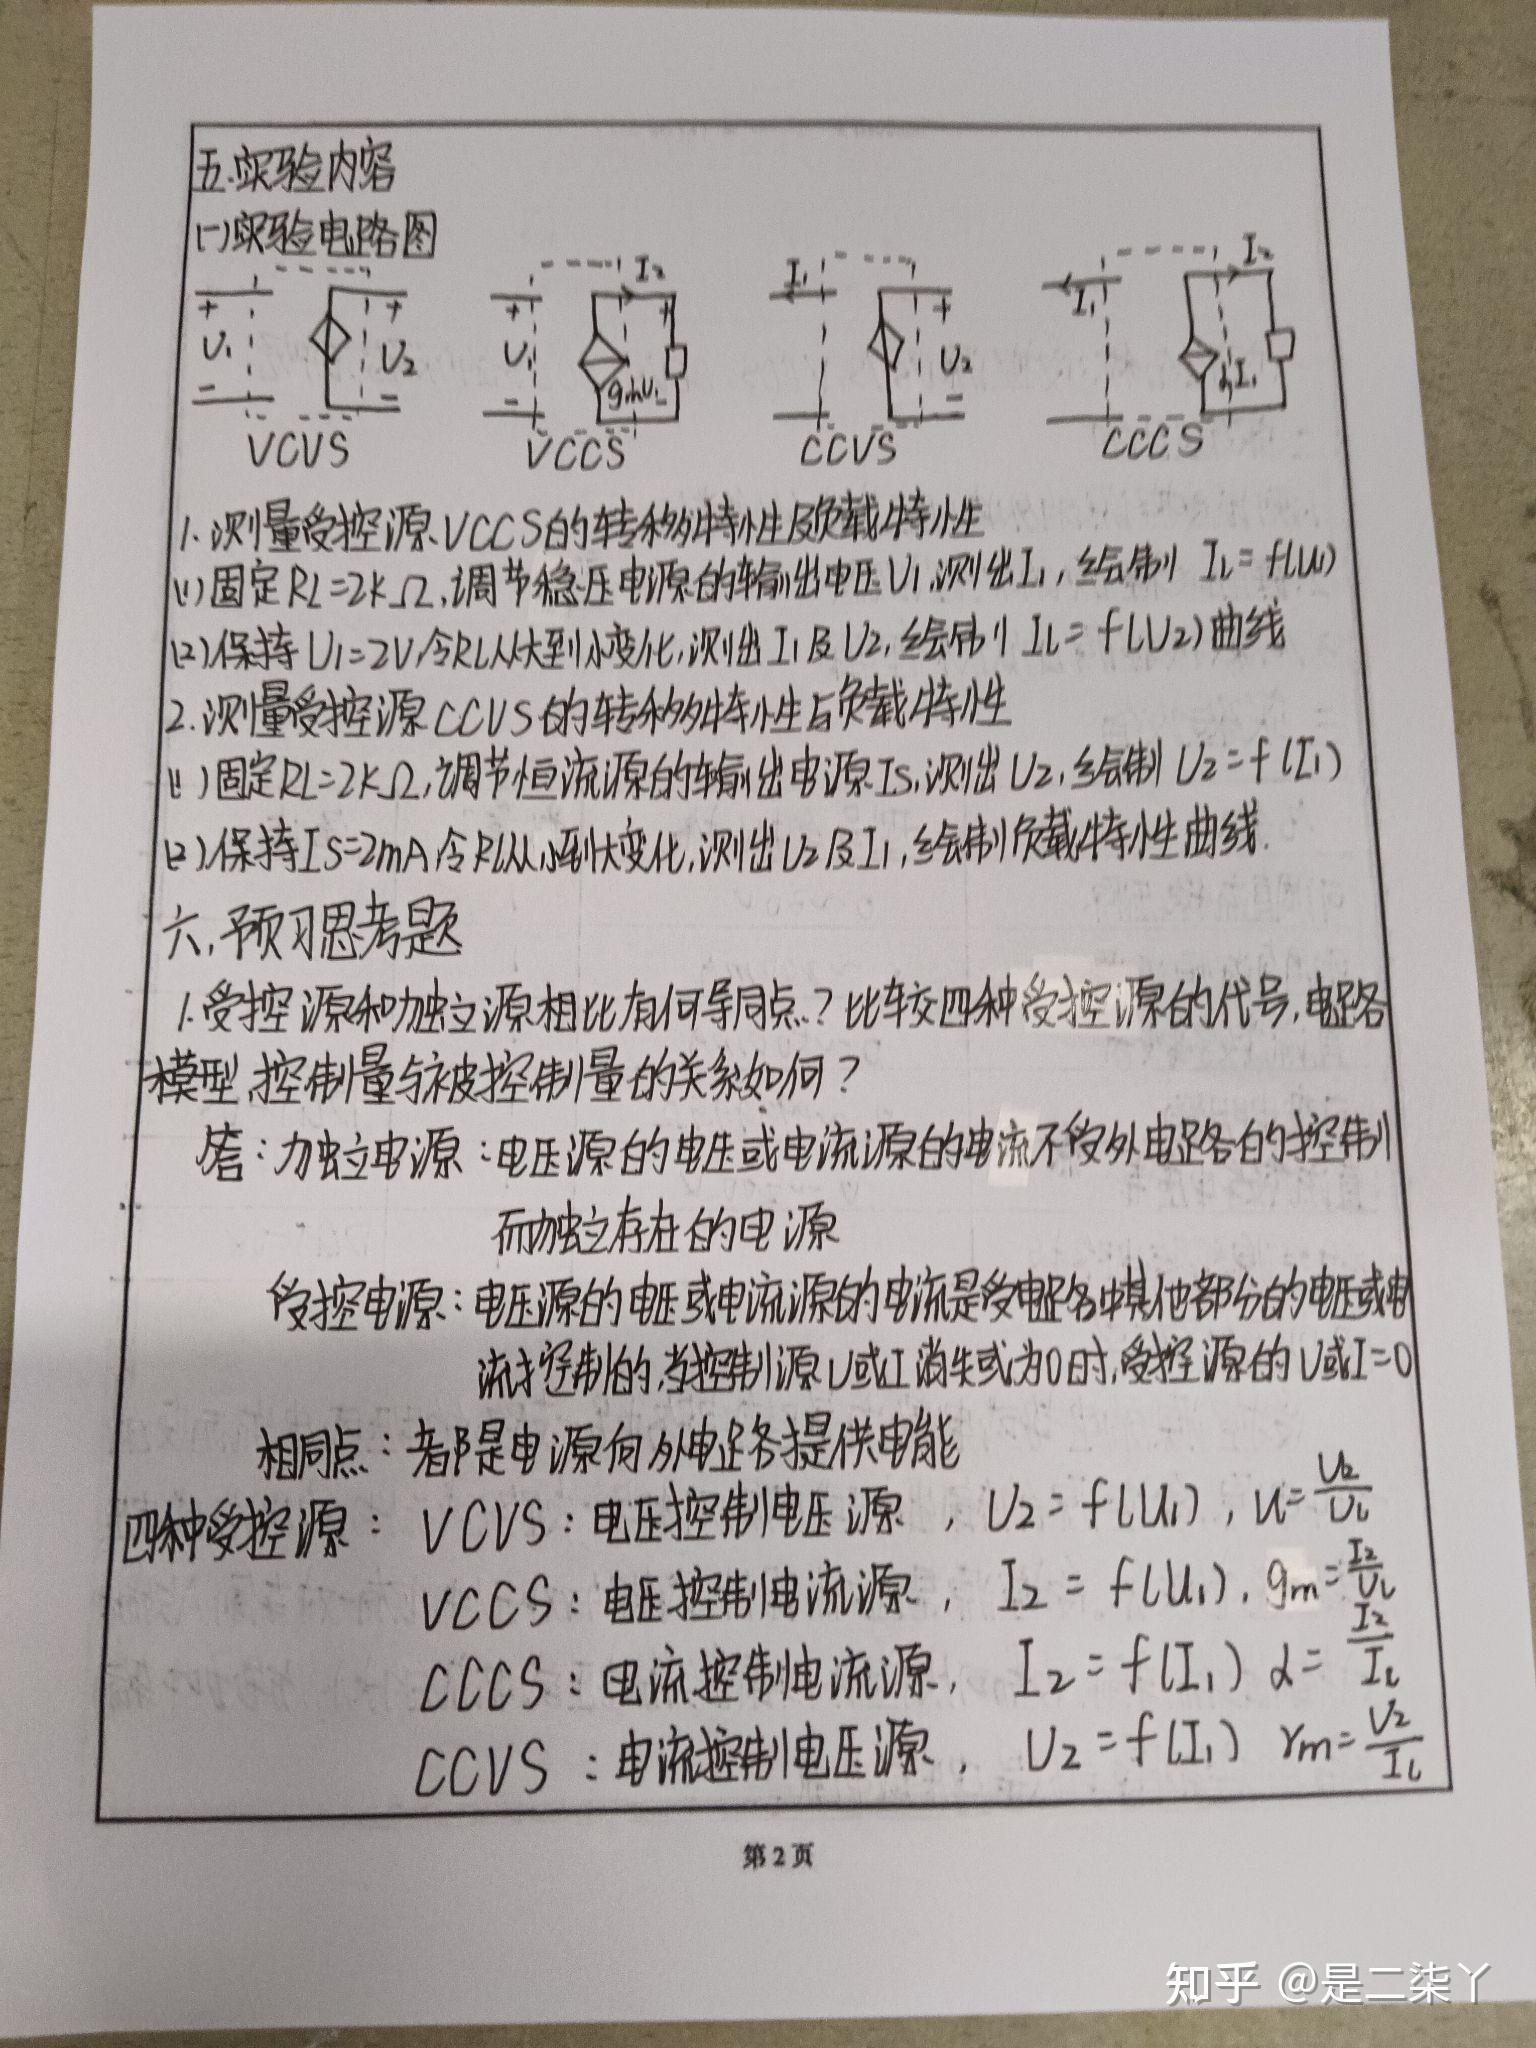 五.实验内容
(一)实验电路图
I₂ I₁ I₂
+ + + + + I₁
U₁ U₂ U₁ gmU₁ U₂ αI₁
- - - -
VCVS VCCS CCVS CCCS
1.测量受控源VCCS的转移特性及负载特性
(1)固定RL=2KΩ,调节稳压电源的输出电压U1,测出I1,绘制 IL=f(U1)
(2).保持U1=2V,令RL从大到小变化,测出I1及U2,绘制 IL=f(U2)曲线
2.测量受控源CCVS的转移特性与负载特性
(1)固定RL=2KΩ,调节恒流源的输出电源IS,测出U2,绘制U2=f(I1)
(2).保持IS=2mA,令RL从小到大变化,测出U2及I1,绘制负载特性曲线.
六.预习思考题
1.受控源和独立源相比有何异同点?比较四种受控源的代号,电路
模型,控制量与被控制量的关系如何?
答:独立电源:电压源的电压或电流源的电流不受外电路的控制
而独立存在的电源
受控电源:电压源的电压或电流源的电流是受电路中其他部分的电压或电
流控制的,当控制源U或I消失或为0时,受控源的U或I=0
相同点:都是电源向外电路提供电能
四种受控源: VCVS:电压控制电压源, U2=f(U1), u=U2/U1
VCCS:电压控制电流源, I2=f(U1), gm=I2/U1
CCCS:电流控制电流源, I2=f(I1) α=I2/I1
CCVS:电流控制电压源, U2=f(I1) rm=U2/I1
第2页
知乎 @是二柒丫